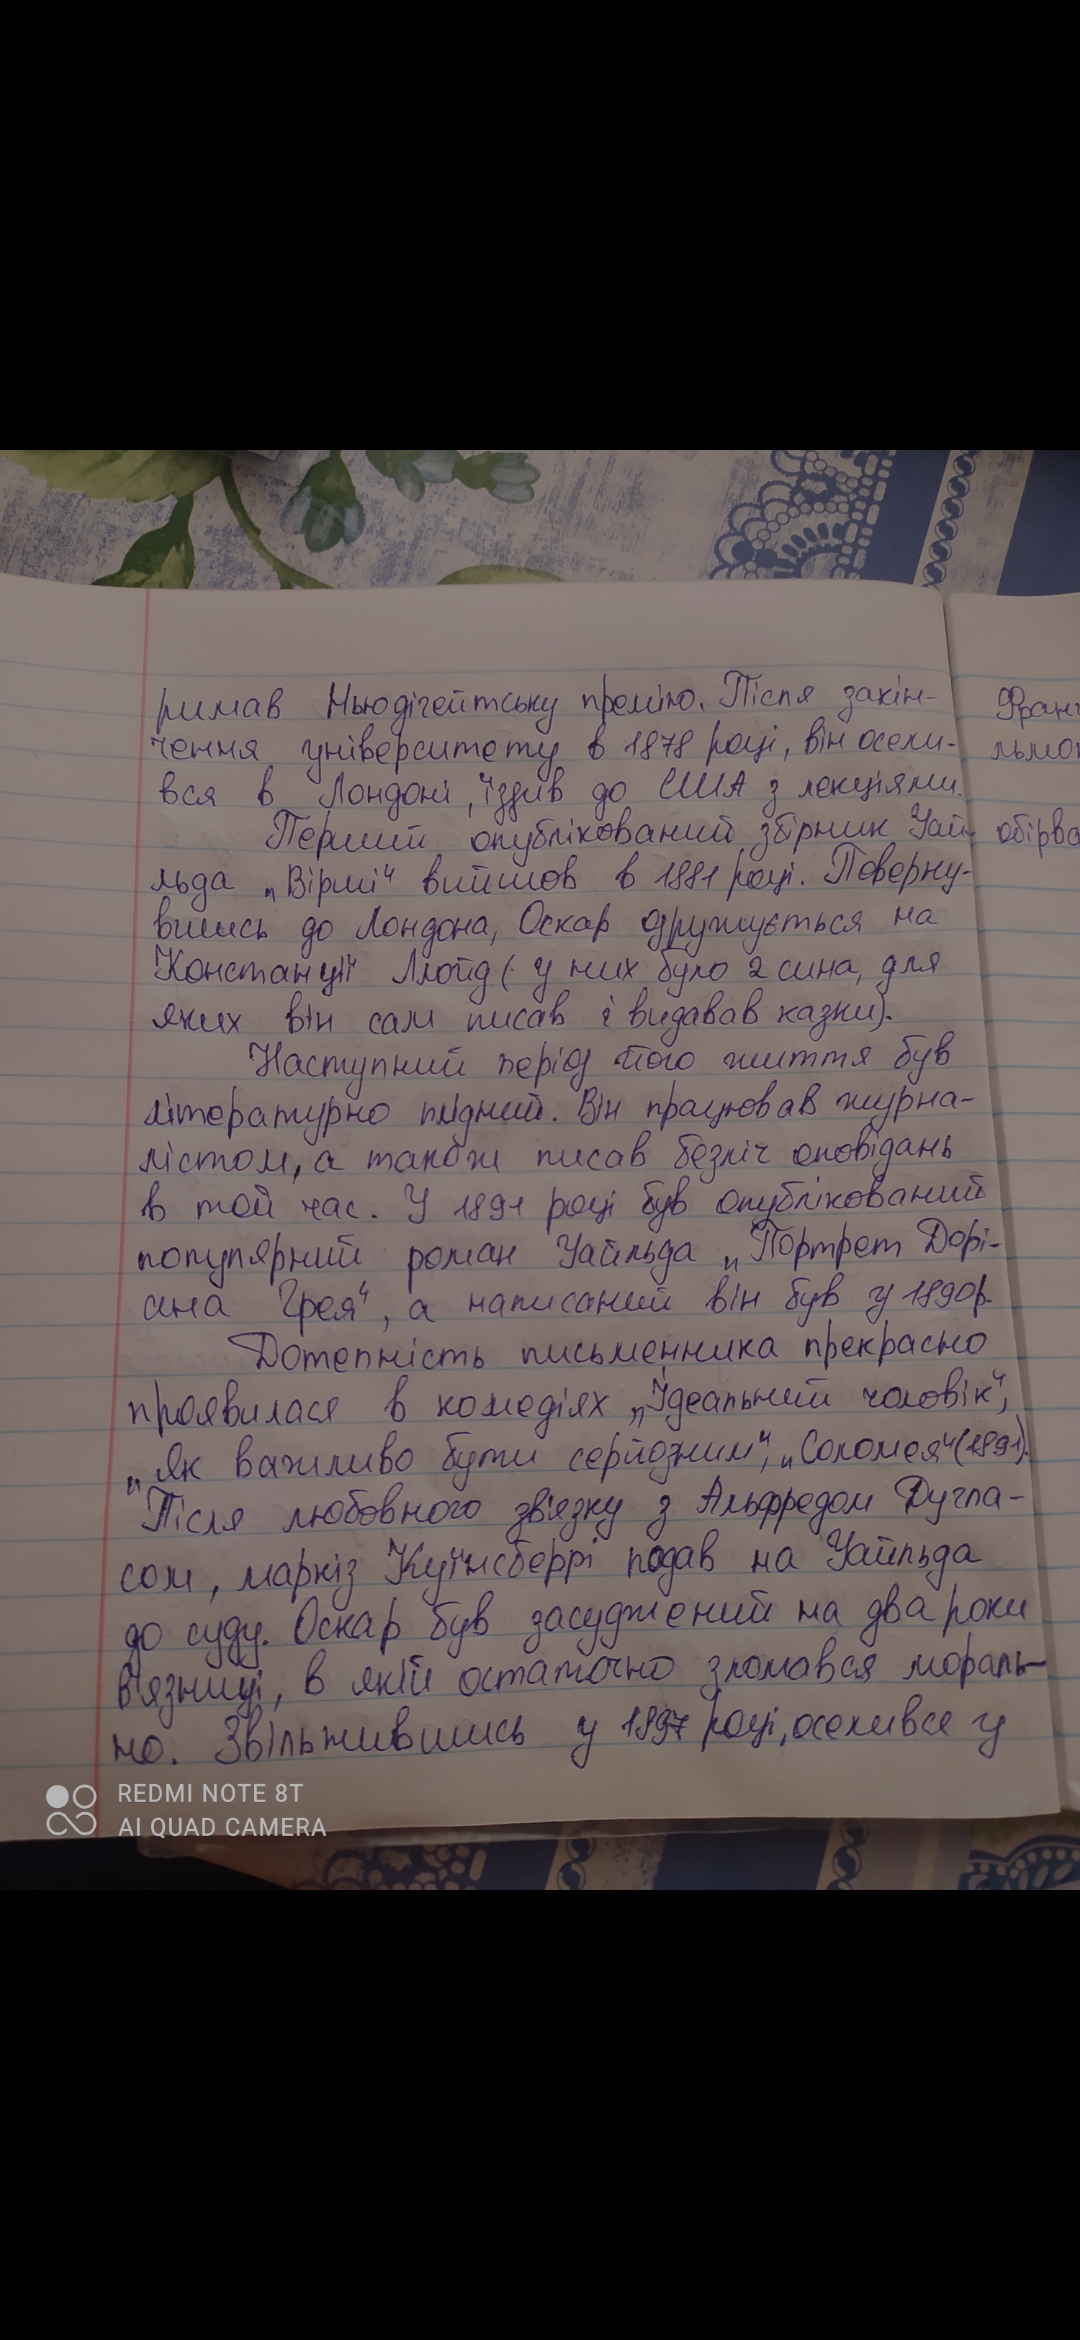 римав Ньюдігейтську премію. Після закін-
чення університету в 1878 році, він осели-
вся в Лондоні, їздив до США з лекціями.
Перший опублікований збірник Уай-
льда „Вірші“ вийшов в 1881 році. Поверну-
вшись до Лондона, Оскар одружується на
Констанції Ллойд (у них було 2 сина, для
яких він сам писав і видавав казки).
Наступний період його життя був
літературно плідний. Він працював журна-
лістом, а також писав безліч оповідань
в той час. У 1891 році був опублікований
популярний роман Уайльда „Портрет Дорі-
ана Грея“, а написаний він був у 1890р.
Дотепність письменника прекрасно
проявилася в комедіях „Ідеальний чоловік“,
„Як важливо бути серйозним“, „Соломея“ (1891).
Після любовного зв'язку з Альфредом Дугла-
сом, маркіз Куїнсберрі подав на Уайльда
до суду. Оскар був засуджений на два роки
в'язниці, в якій остаточно зломався мораль-
но. Звільнившись у 1897 році, оселився у
Франц
льмо
обірва
REDMI NOTE 8T
AI QUAD CAMERA